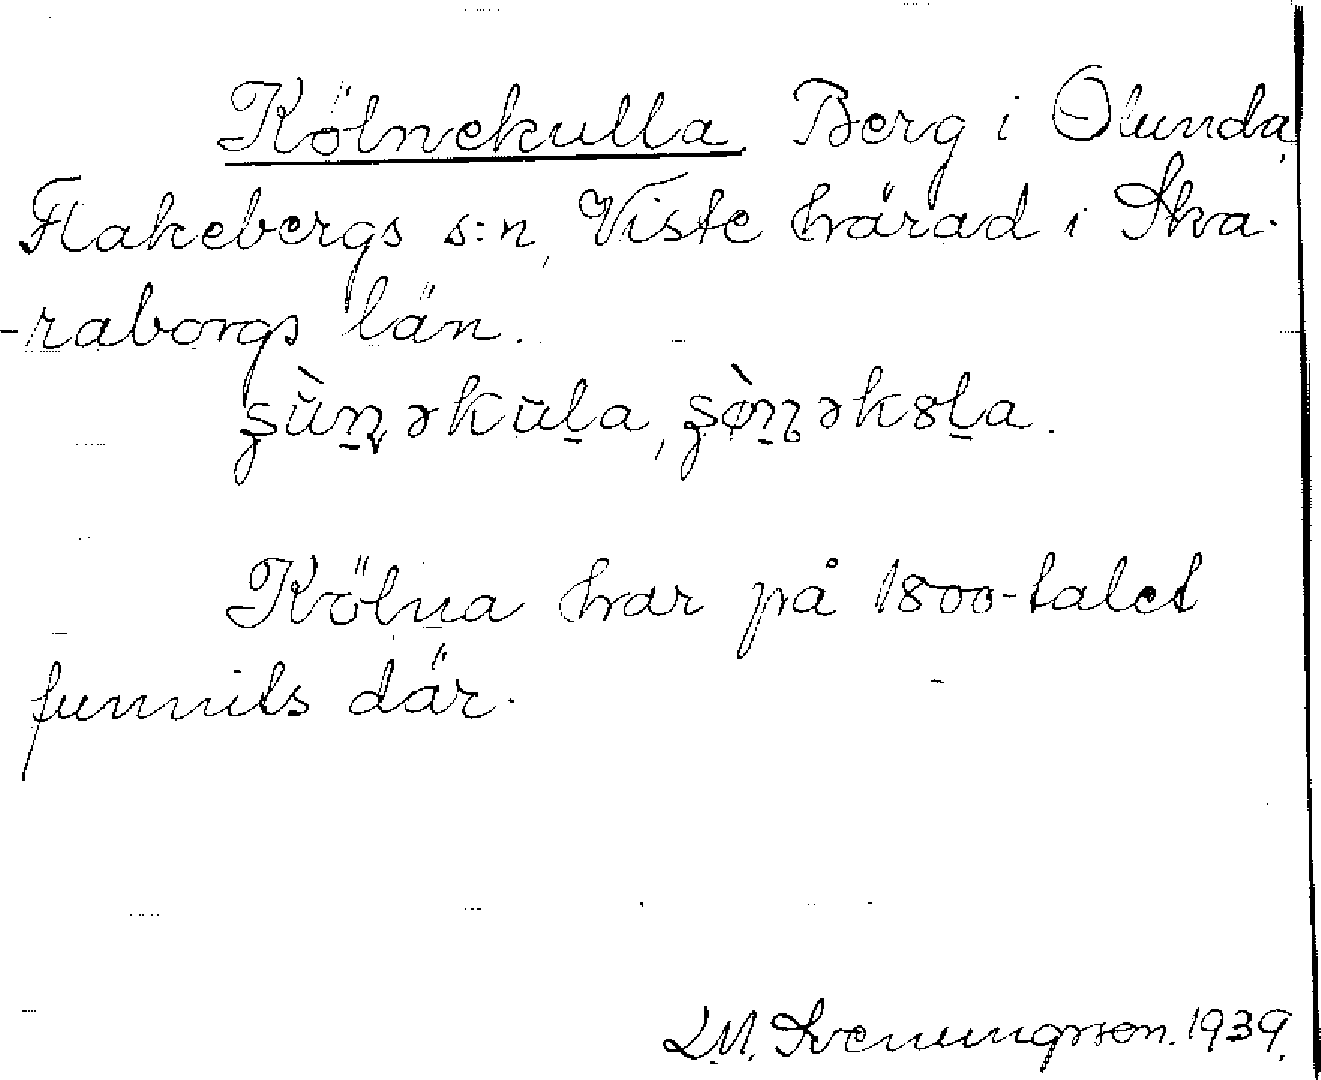 Kölnekulla. Berg i Ölunda,
Flakebergs s:n, Viste härad i Ska-
-raborgs län.
Kölna har på 1800-talet
funnits där.
L.M. Svenungsson. 1939.